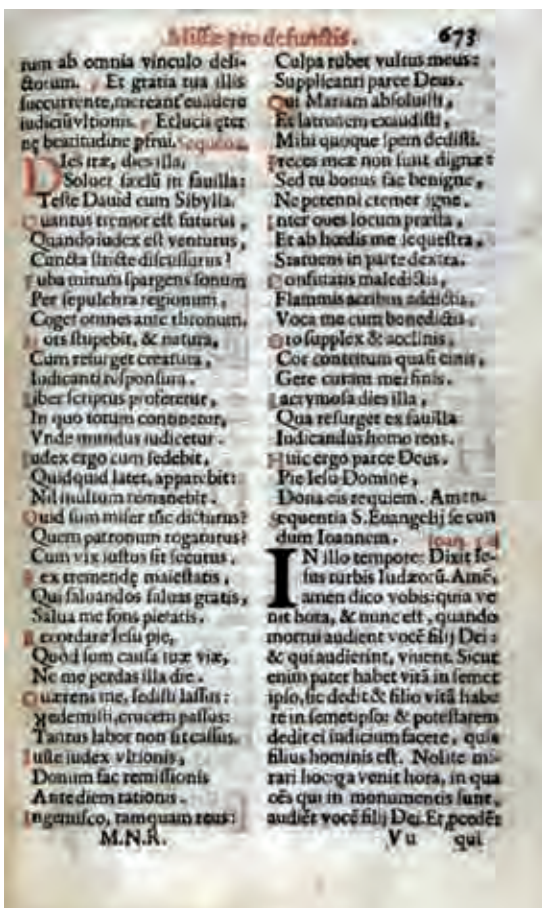 Missæ pro defunctis. 673
rum ab omnia vinculo deli-
ctorum. Et gratia tua illis
succurrente, mereant' euadere
iudiciū vltionis. Et lucis ęter
nę beatitudine pfrui. Sequeñtia.
DIes iræ, dies illa,
Soluet sæclū in fauilla:
Teste Dauid cum Sibylla.
Quantus tremor est futurus,
Quando iudex est venturus,
Cuncta stricte discussurus!
Tuba mirum spargens sonum
Per sepulchra regionum,
Coget omnes ante thronum.
Mors stupebit, & natura,
Cum resurget creatura,
Iudicanti responsura.
Liber scriptus proferetur,
In quo totum continetur,
Vnde mundus iudicetur.
Iudex ergo cum sedebit,
Quidquid latet, apparebit:
Nil inultum remanebit.
Quid sum miser tūc dicturus?
Quem patronum rogaturus?
Cum vix iustus sit securus.
Rex tremendę maiestatis,
Qui saluandos saluas gratis,
Salua me fons pietatis.
Recordare Iesu pie,
Quòd sum causa tuæ viæ,
Ne me perdas illa die.
Quærens me, sedisti lassus:
Redemisti, crucem passus:
Tantus labor non sit cassus.
Iuste iudex vltionis,
Donum fac remissionis
Ante diem rationis.
Ingemisco, tamquam reus:
M.N.R.
Culpa rubet vultus meus:
Supplicanti parce Deus.
Qui Mariam absoluisti,
Et latronem exaudisti,
Mihi quoque spem dedisti.
Preces meæ non sunt dignæ:
Sed tu bonus fac benigne,
Ne perenni cremer igne.
Inter oues locum præsta,
Et ab hœdis me sequestra,
Statuens in parte dextra.
Confutatis maledictis,
Flammis acribus addictis,
Voca me cum benedictis.
Oro supplex & acclinis,
Cor contritum quasi cinis,
Gere curam mei finis.
Lacrymosa dies illa,
Qua resurget ex fauilla
Iudicandus homo reus.
Huic ergo parce Deus.
Pie Iesu Domine,
Dona eis requiem. Amen.
Sequentia S. Euangelij secun
dum Ioannem. Ioan.
IN illo tempore: Dixit Ie-
sus turbis Iudæorū. Amē,
amen dico vobis: quia ve
nit hora, & nunc est, quando
mortui audient vocē filij Dei:
& qui audierint, viuent. Sicut
enim pater habet vitā in semet
ipso, sic dedit & filio vitā habe
re in semetipso: & potestatem
dedit ei iudicium facere, quia
filius hominis est. Nolite mi-
rari hoc: qa venit hora, in qua
oēs qui in monumentis sunt,
audiēt vocē filij Dei. Et pcedēt
Vu qui